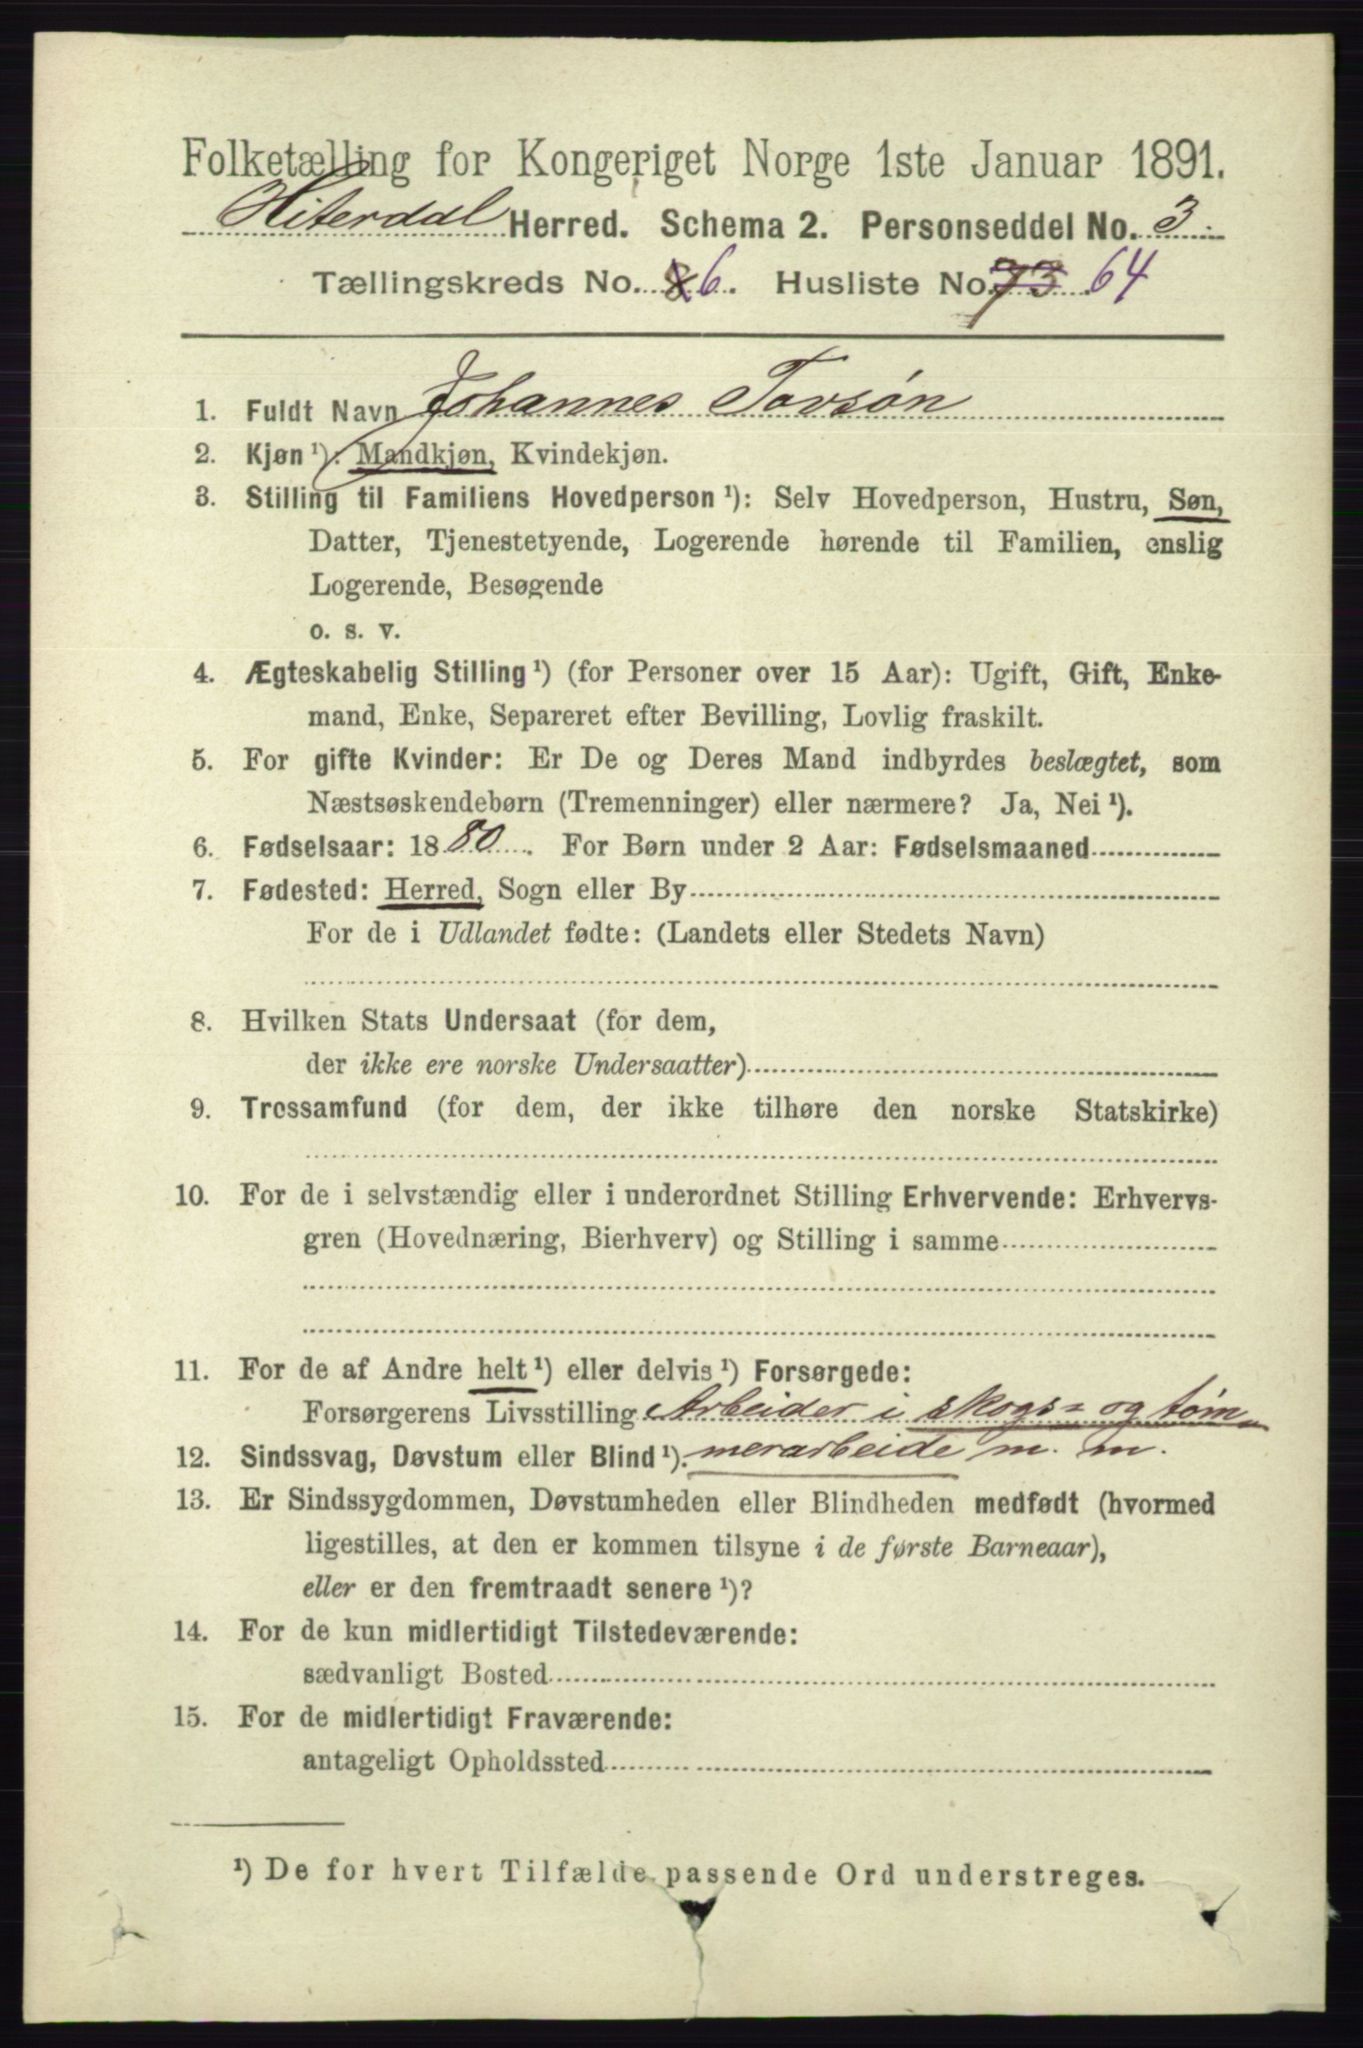 Folketælling for Kongeriget Norge 1ste Januar 1891.
Hiterdal Herred. Schema 2. Personseddel No. 3
Tællingskreds No. 8 6. Husliste No. 73 64
1. Fuldt Navn Johannes Tovsøn
2. Kjøn ¹): Mandkjøn, Kvindekjøn.
3. Stilling til Familiens Hovedperson ¹): Selv Hovedperson, Hustru, Søn,
Datter, Tjenestetyende, Logerende hørende til Familien, enslig
Logerende, Besøgende
o. s. v.
4. Ægteskabelig Stilling ¹) (for Personer over 15 Aar): Ugift, Gift, Enke-
mand, Enke, Separeret efter Bevilling, Lovlig fraskilt.
5. For gifte Kvinder: Er De og Deres Mand indbyrdes beslægtet, som
Næstsøskendebørn (Tremenninger) eller nærmere? Ja, Nei ¹).
6. Fødselsaar: 1880. For Børn under 2 Aar: Fødselsmaaned
7. Fødested: Herred, Sogn eller By
For de i Udlandet fødte: (Landets eller Stedets Navn)
8. Hvilken Stats Undersaat (for dem,
der ikke ere norske Undersaatter)
9. Trossamfund (for dem, der ikke tilhøre den norske Statskirke)
10. For de i selvstændig eller i underordnet Stilling Erhvervende: Erhvervs-
gren (Hovednæring, Bierhverv) og Stilling i samme
11. For de af Andre helt ¹) eller delvis ¹) Forsørgede:
Forsørgerens Livsstilling Arbeider i skogs= og töm-
12. Sindssvag, Døvstum eller Blind ¹). merarbeide m. m.
13. Er Sindssygdommen, Døvstumheden eller Blindheden medfødt (hvormed
ligestilles, at den er kommen tilsyne i de første Barneaar),
eller er den fremtraadt senere ¹)?
14. For de kun midlertidigt Tilstedeværende:
sædvanligt Bosted
15. For de midlertidigt Fraværende:
antageligt Opholdssted
¹) De for hvert Tilfælde passende Ord understreges.